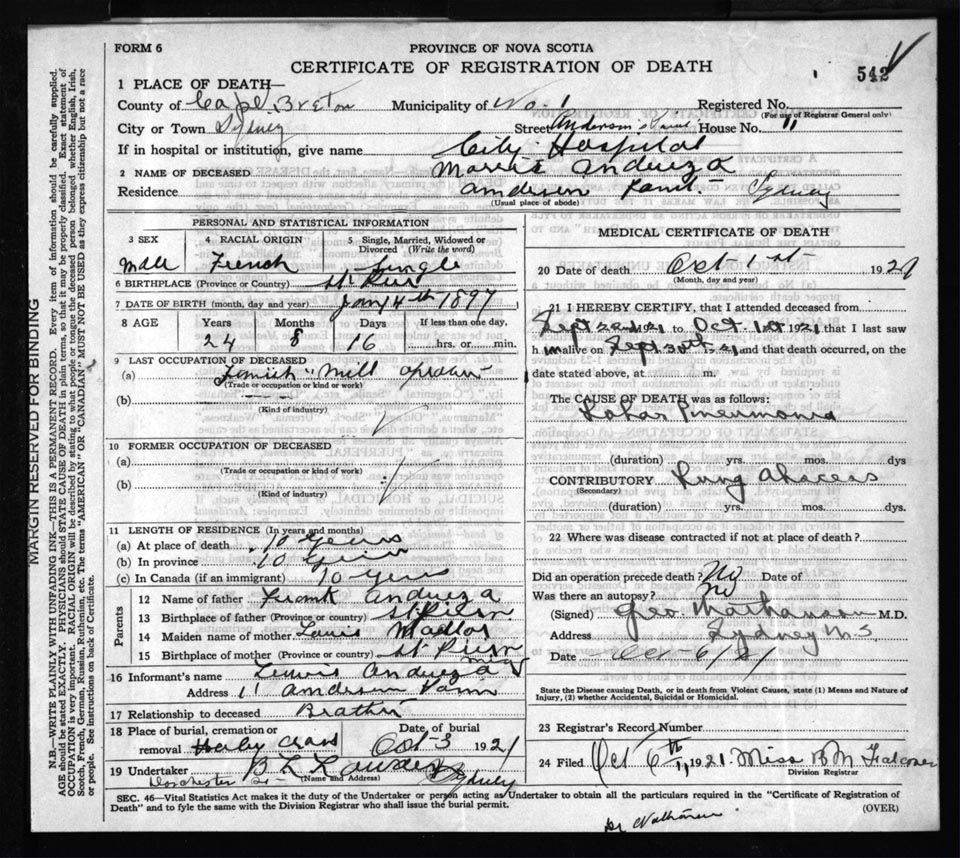 FORM 6
PROVINCE OF NOVA SCOTIA
CERTIFICATE OF REGISTRATION OF DEATH
542
1 PLACE OF DEATH—
County of Cape Breton Municipality of No. 1 Registered No.
(For use of Registrar General only)
City or Town Sydney Street Anderson's House No. 11
If in hospital or institution, give name City Hospital
2 NAME OF DECEASED Morris Andueza
Residence Anderson Lane Sydney
(Usual place of abode)
PERSONAL AND STATISTICAL INFORMATION
3 SEX 4 RACIAL ORIGIN 5 Single, Married, Widowed or Divorced (Write the word)
Male French Single
6 BIRTHPLACE (Province or Country) St. Pier
7 DATE OF BIRTH (month, day and year) Jany 14th 1897
8 AGE Years Months Days If less than one day,
24 8 16 hrs. or min.
9 LAST OCCUPATION OF DECEASED
(a) Finish Mill
(Trade or occupation or kind or work)
(b)
(Kind of industry)
10 FORMER OCCUPATION OF DECEASED
(a)
(Trade or occupation or kind of work)
(b)
(Kind of industry)
11 LENGTH OF RESIDENCE (In years and months)
(a) At place of death 10 years
(b) In province 10 years
(c) In Canada (if an immigrant) 10 years
Parents
12 Name of father Frank Andueza
13 Birthplace of father (Province or country) St Piern
14 Maiden name of mother Louis
15 Birthplace of mother (Province or country) St Piern
16 Informant's name Lewis Andueza
Address 11 Anderson Lane
17 Relationship to deceased Brother
18 Place of burial, cremation or removal Holy Cross Date of burial Oct-3 1921
19 Undertaker B L Sydney
(Name and Address)
Dorchester St
MEDICAL CERTIFICATE OF DEATH
20 Date of death Oct-1st 1921
(Month, day and year)
21 I HEREBY CERTIFY, that I attended deceased from
Sept 22nd 1921 to Oct 1st 1921 that I last saw
h im alive on Sept 30th 1921 and that death occurred, on the
date stated above, at m.
The CAUSE OF DEATH was as follows:
Lobar Pneumonia
(duration) yrs. mos. dys
CONTRIBUTORY Lung Abscess
(Secondary)
(duration) yrs. mos. dys.
22 Where was disease contracted if not at place of death?
Did an operation precede death? No Date of
Was there an autopsy? No
(Signed) Geo. M.D.
Address Sydney N.S
Date Oct-6/21
State the Disease causing Death, or in death from Violent Causes, state (1) Means and Nature of Injury, (2) whether Accidental, Suicidal or Homicidal.
23 Registrar's Record Number
24 Filed Oct 6th 1921. Miss B M Falconer
Division Registrar
SEC. 46—Vital Statistics Act makes it the duty of the Undertaker or person acting as Undertaker to obtain all the particulars required in the "Certificate of Registration of
Death" and to fyle the same with the Division Registrar who shall issue the burial permit. (OVER)
MARGIN RESERVED FOR BINDING
N.B.—WRITE PLAINLY WITH UNFADING INK—THIS IS A PERMANENT RECORD. Every item of information should be carefully supplied.
AGE should be stated EXACTLY. PHYSICIANS should STATE CAUSE OF DEATH in plain terms, so that it may be properly classified. Exact statement of
OCCUPATION is very important. RACIAL ORIGIN will be described by stating to what people or tongue the deceased person belonged, whether English, Irish,
Scotch, French, German, Russian, Ruthenian, etc. The terms "AMERICAN" OR "CANADIAN" MUST NOT BE USED as they express citizenship but not a race
or people. See instructions on back of Certificate.